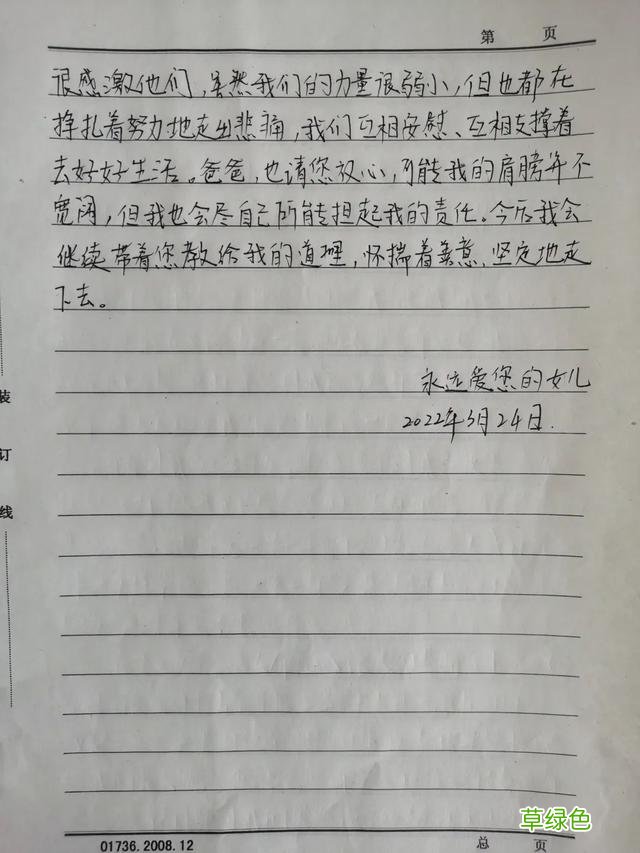 第 页
很感激他们，虽然我们的力量很弱小，但也都在
挣扎着努力地走出悲痛，我们互相安慰、互相支撑着
去好好生活。爸爸，也请您放心，可能我的肩膀并不
宽阔，但我也会尽自己所能担起我的责任。今后我会
继续带着您教给我的道理，怀揣着善意，坚定地走
下去。
永远爱您的女儿
2022年3月24日.
装
订
线
草绿色
01736.2008.12 总 页